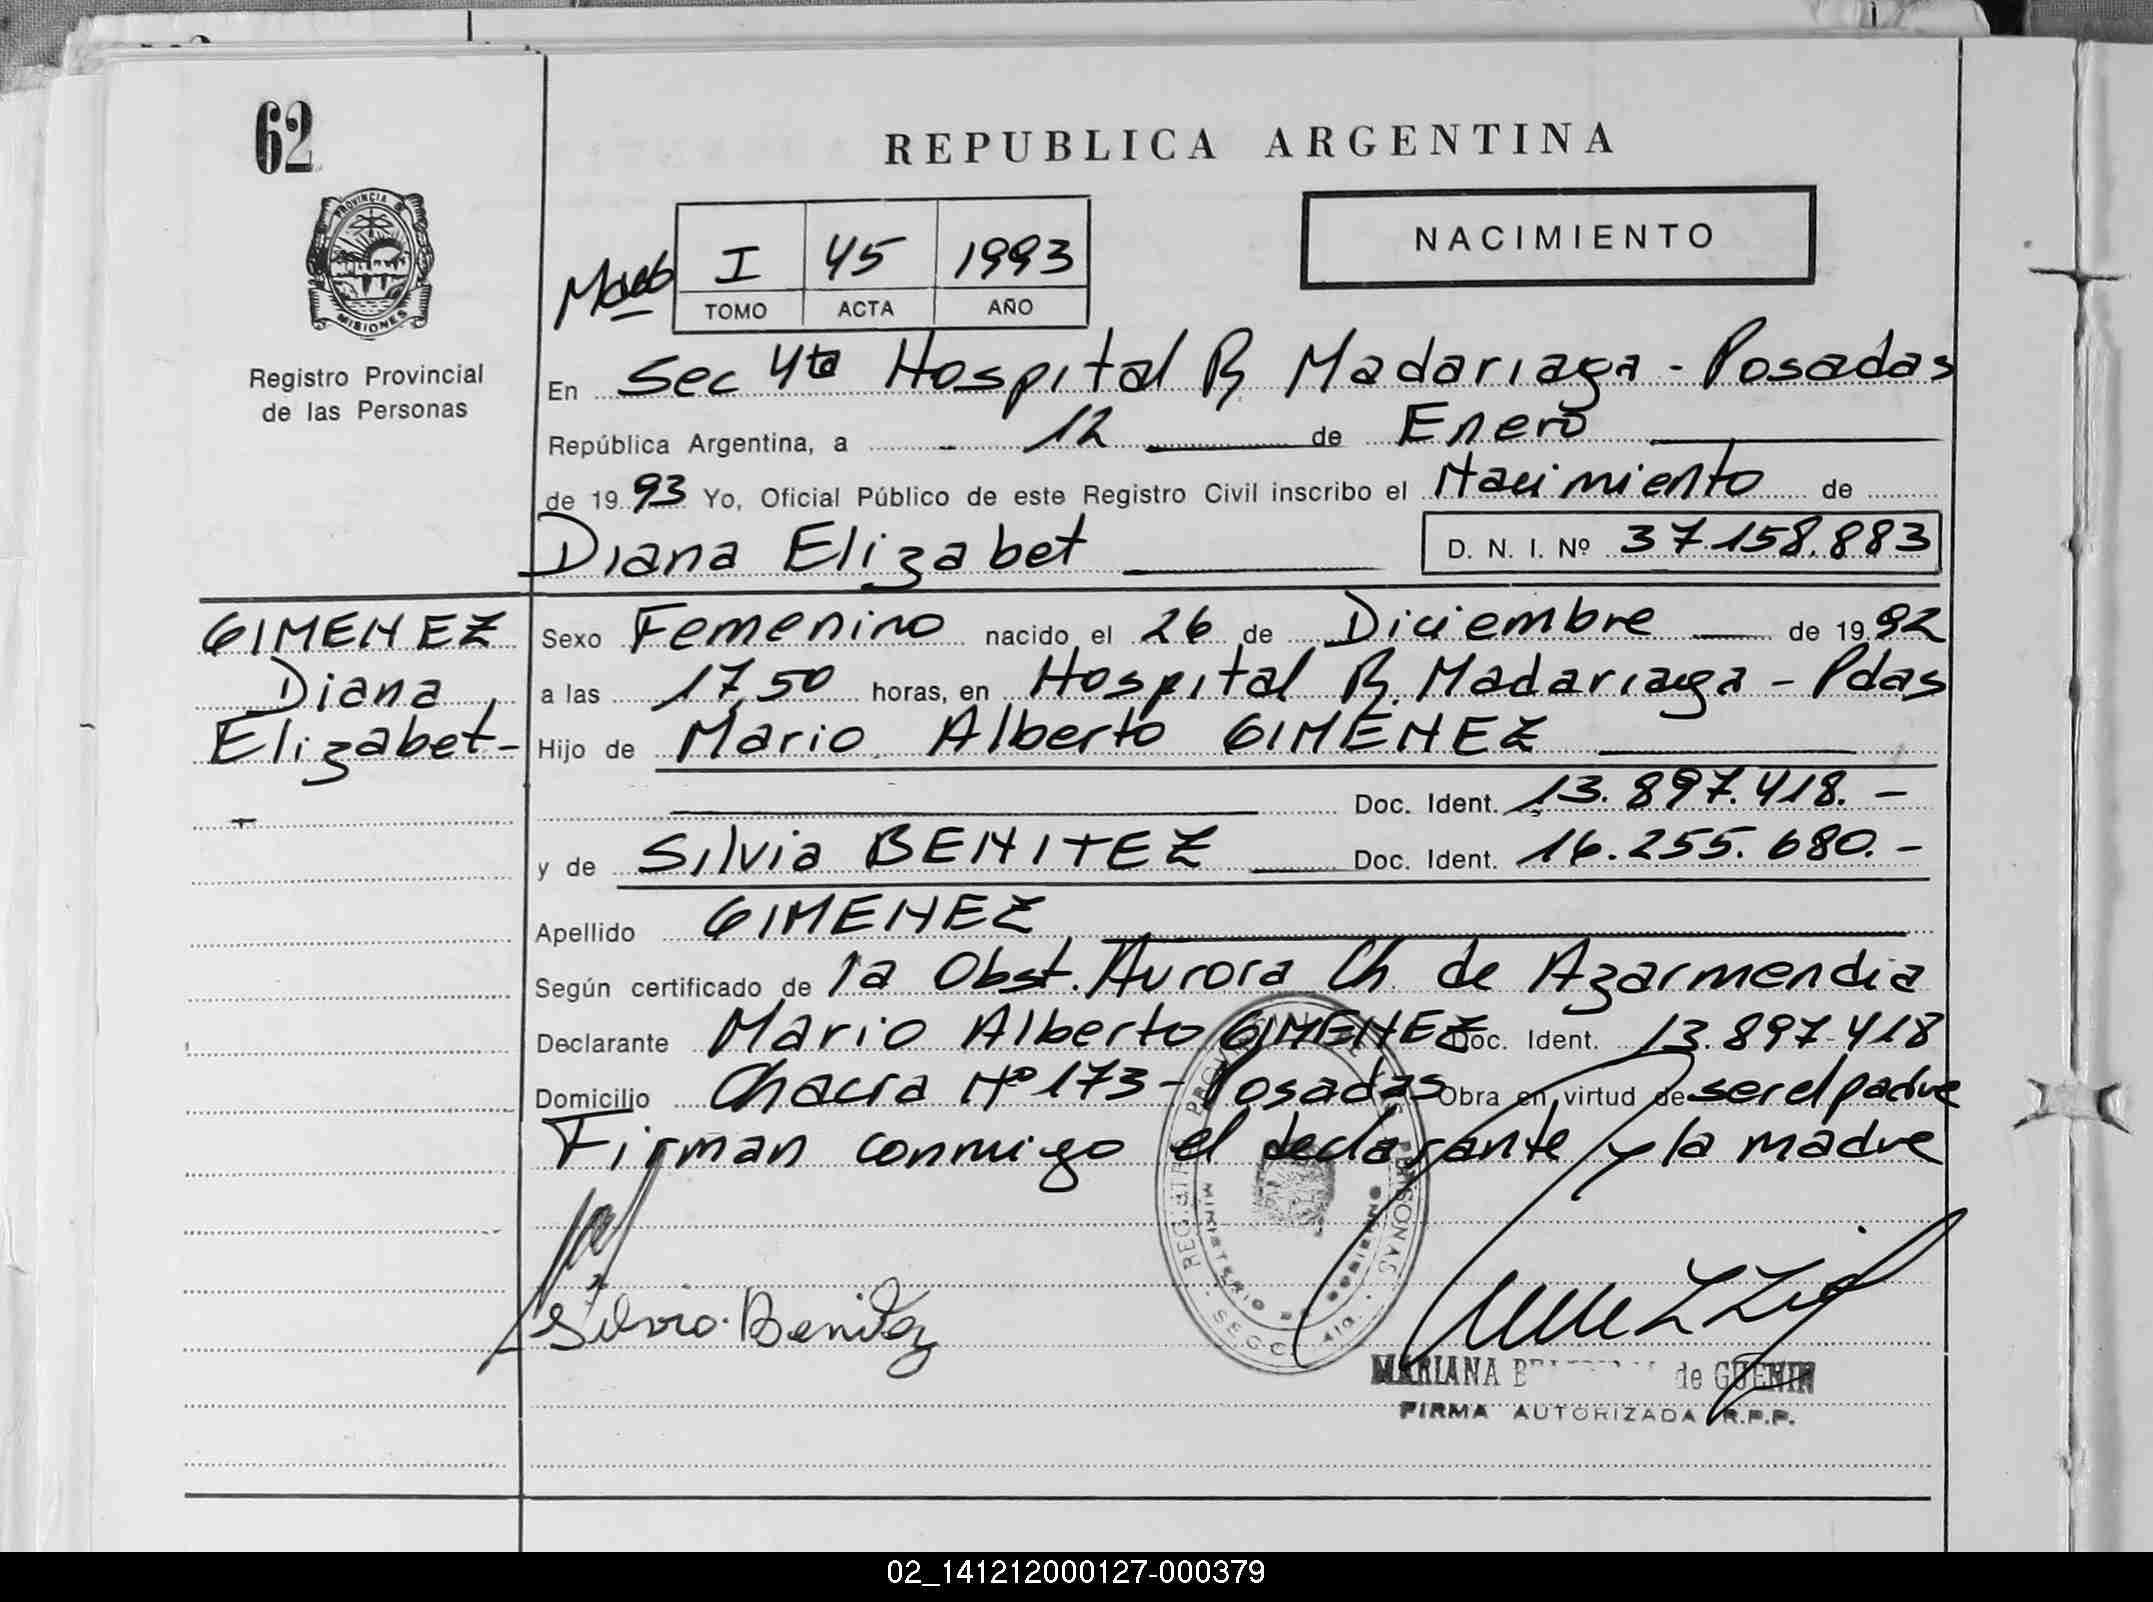 62
REPUBLICA ARGENTINA
PROVINCIA DE
MISIONES
Registro Provincial
de las Personas
NACIMIENTO
I 45 1993
TOMO ACTA AÑO
En Sec 4ta Hospital R Madariaga - Posadas
República Argentina, a 12 de Enero
de 19 93 Yo, Oficial Público de este Registro Civil inscribo el Nacimiento de
Diana Elizabet D. N. I. Nº 37.158.883
GIMENEZ
Diana
Elizabet-
Sexo Femenino nacido el 26 de Diciembre de 19 92
a las 17,50 horas, en Hospital R. Madariaga - Pdas
Hijo de Mario Alberto GIMENEZ
Doc. Ident. 13.897.418. -
y de Silvia BENITEZ Doc. Ident. 16.255.680. -
Apellido GIMENEZ
Según certificado de la Obst. Aurora Ch de Azarmendia
Declarante Mario Alberto GIMENEZ Doc. Ident. 13.897.418
Domicilio Chacra Nº 173 - Posadas Obra en virtud de ser el padre
Firman conmigo el declarante y la madre
Silvia Benitez
MINISTERIO DE GOBIERNO
MARIANA de GUENIN
FIRMA AUTORIZADA R.P.P.
02_141212000127-000379